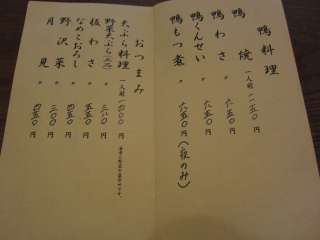 鴨料理
鴨焼 一人前 一一五〇円
鴨わさ 〃 七五〇円
鴨くんせい 〃 七五〇円
鴨もつ煮 〃 六五〇円(夜のみ)
おつまみ
天ぷら料理 一人前 一四〇〇円
野菜天ぷら
板わさ 〃 五五〇円
なめこおろし 〃 五五〇円
野沢菜 〃 三〇〇円
月見 〃 四五〇円